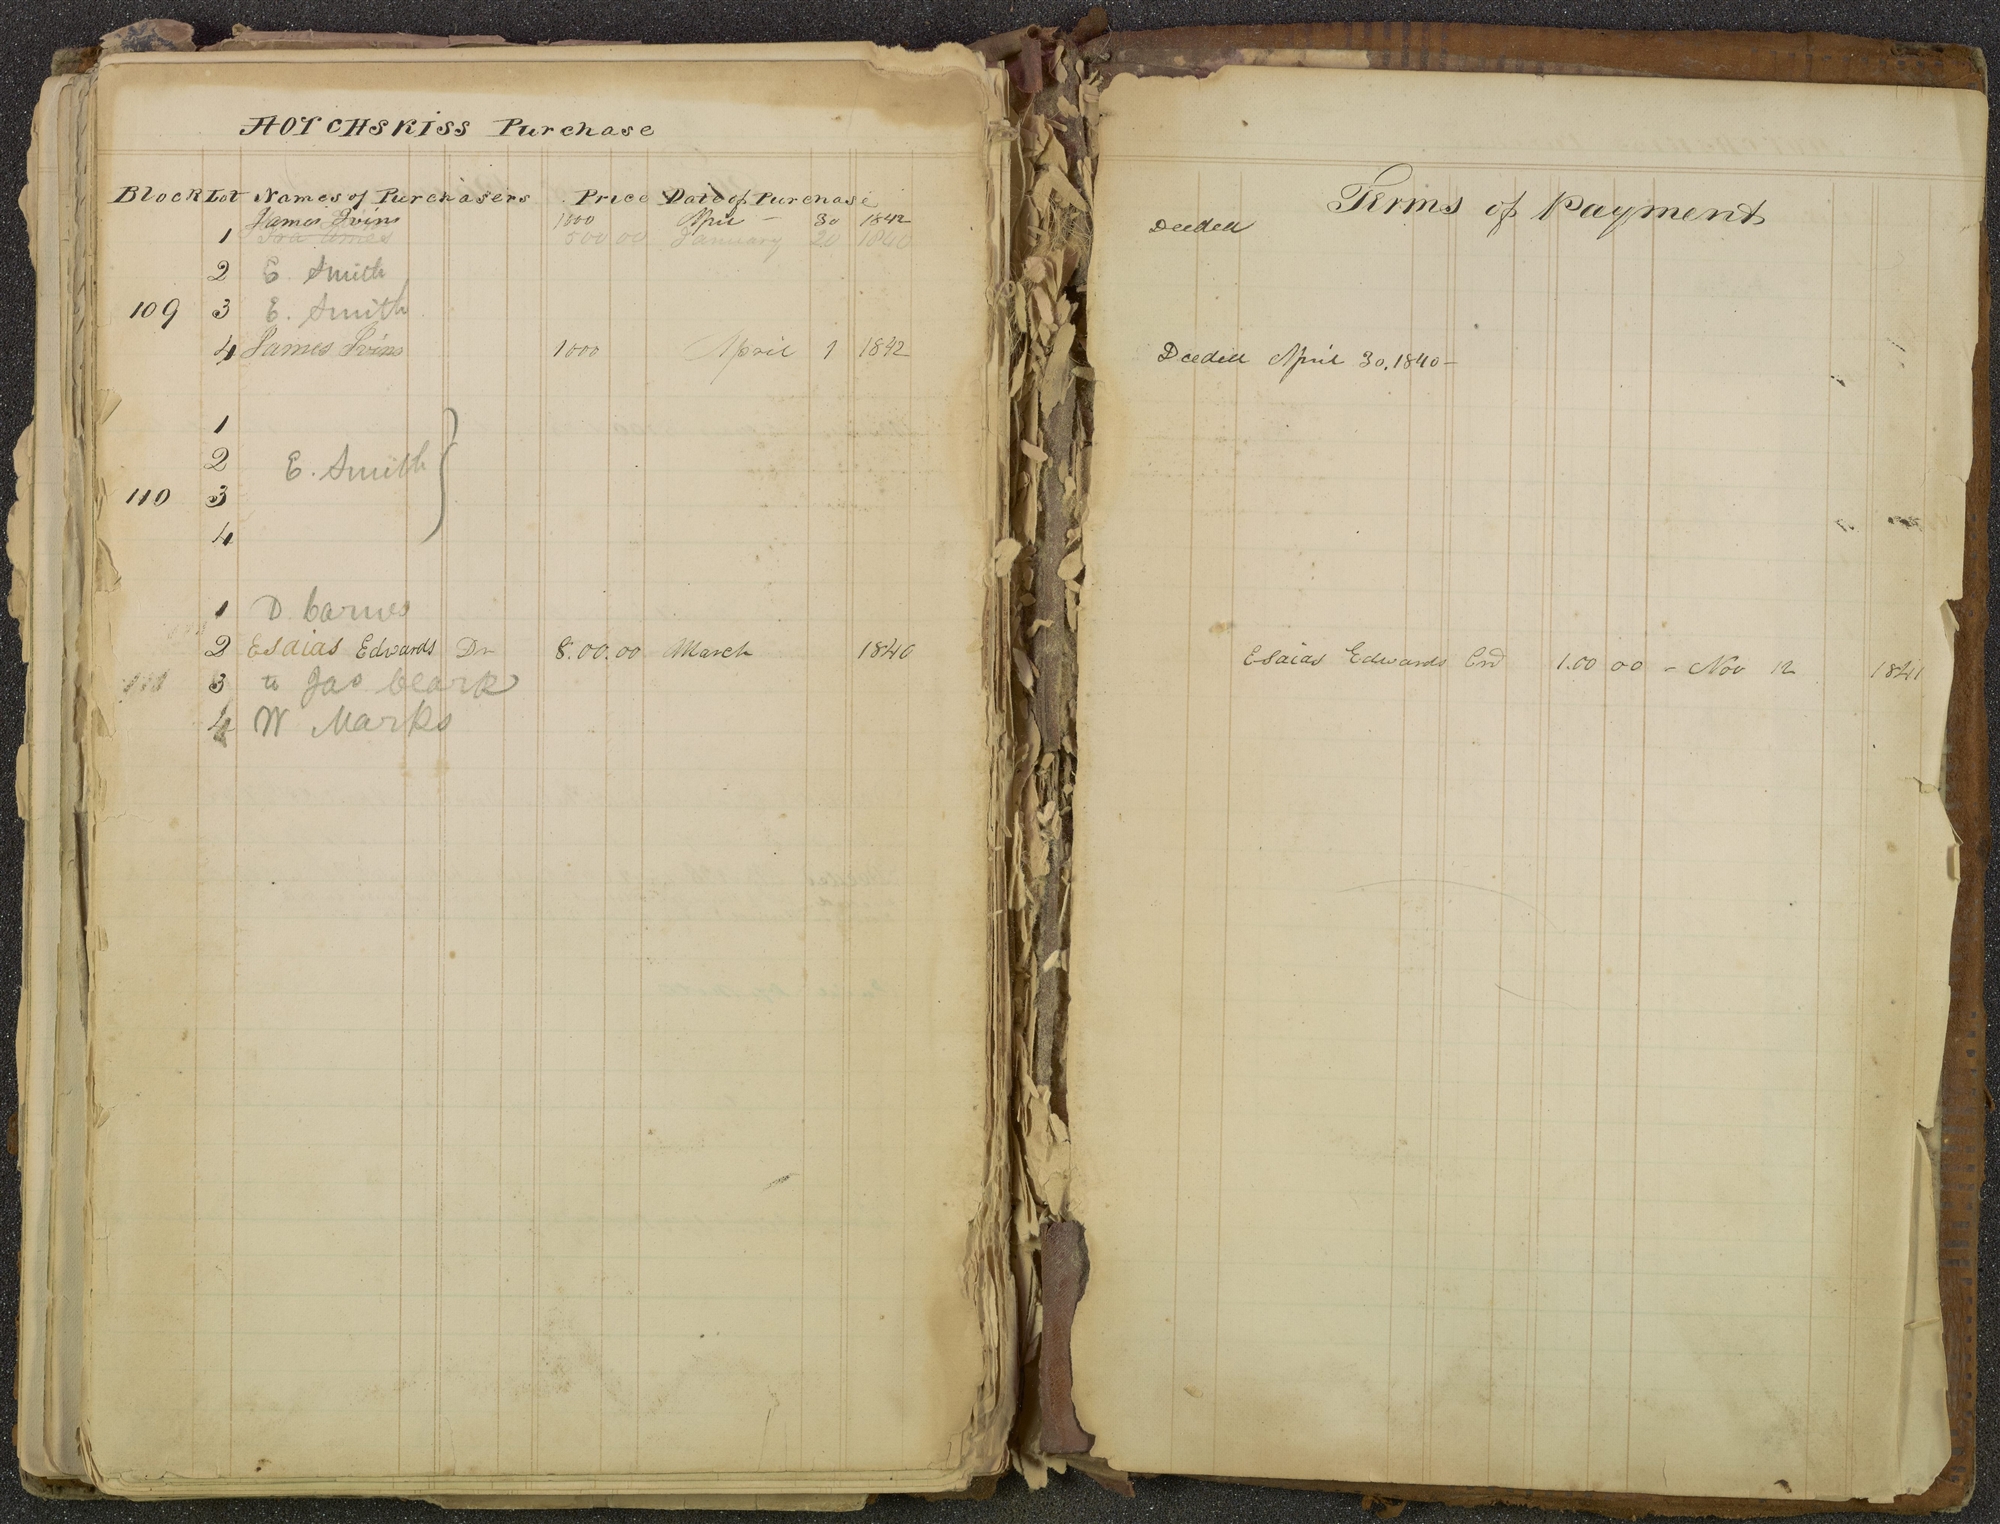 HOTCHSKISS Purchase
Block Lot Names of Purchasers Price Date of Purchase
James Ivins 1000 April - 30 1842
1 Ira Ames 500 00 January 20 1840
2 E. Smith
109 3 E. Smith
4 James Ivins 1000 April 1 1842
1
2 E. Smith
110 3
4
1 D. Carnes
2 Esaias Edwards Dr 8.00.00 March 1840
111 3 to Jas Cleark
4 W Marks
Terms of Payment
Deeded
Deeded April 30, 1840-
Esaias Edwards Crd 1.00 00 - Nov 12 1841